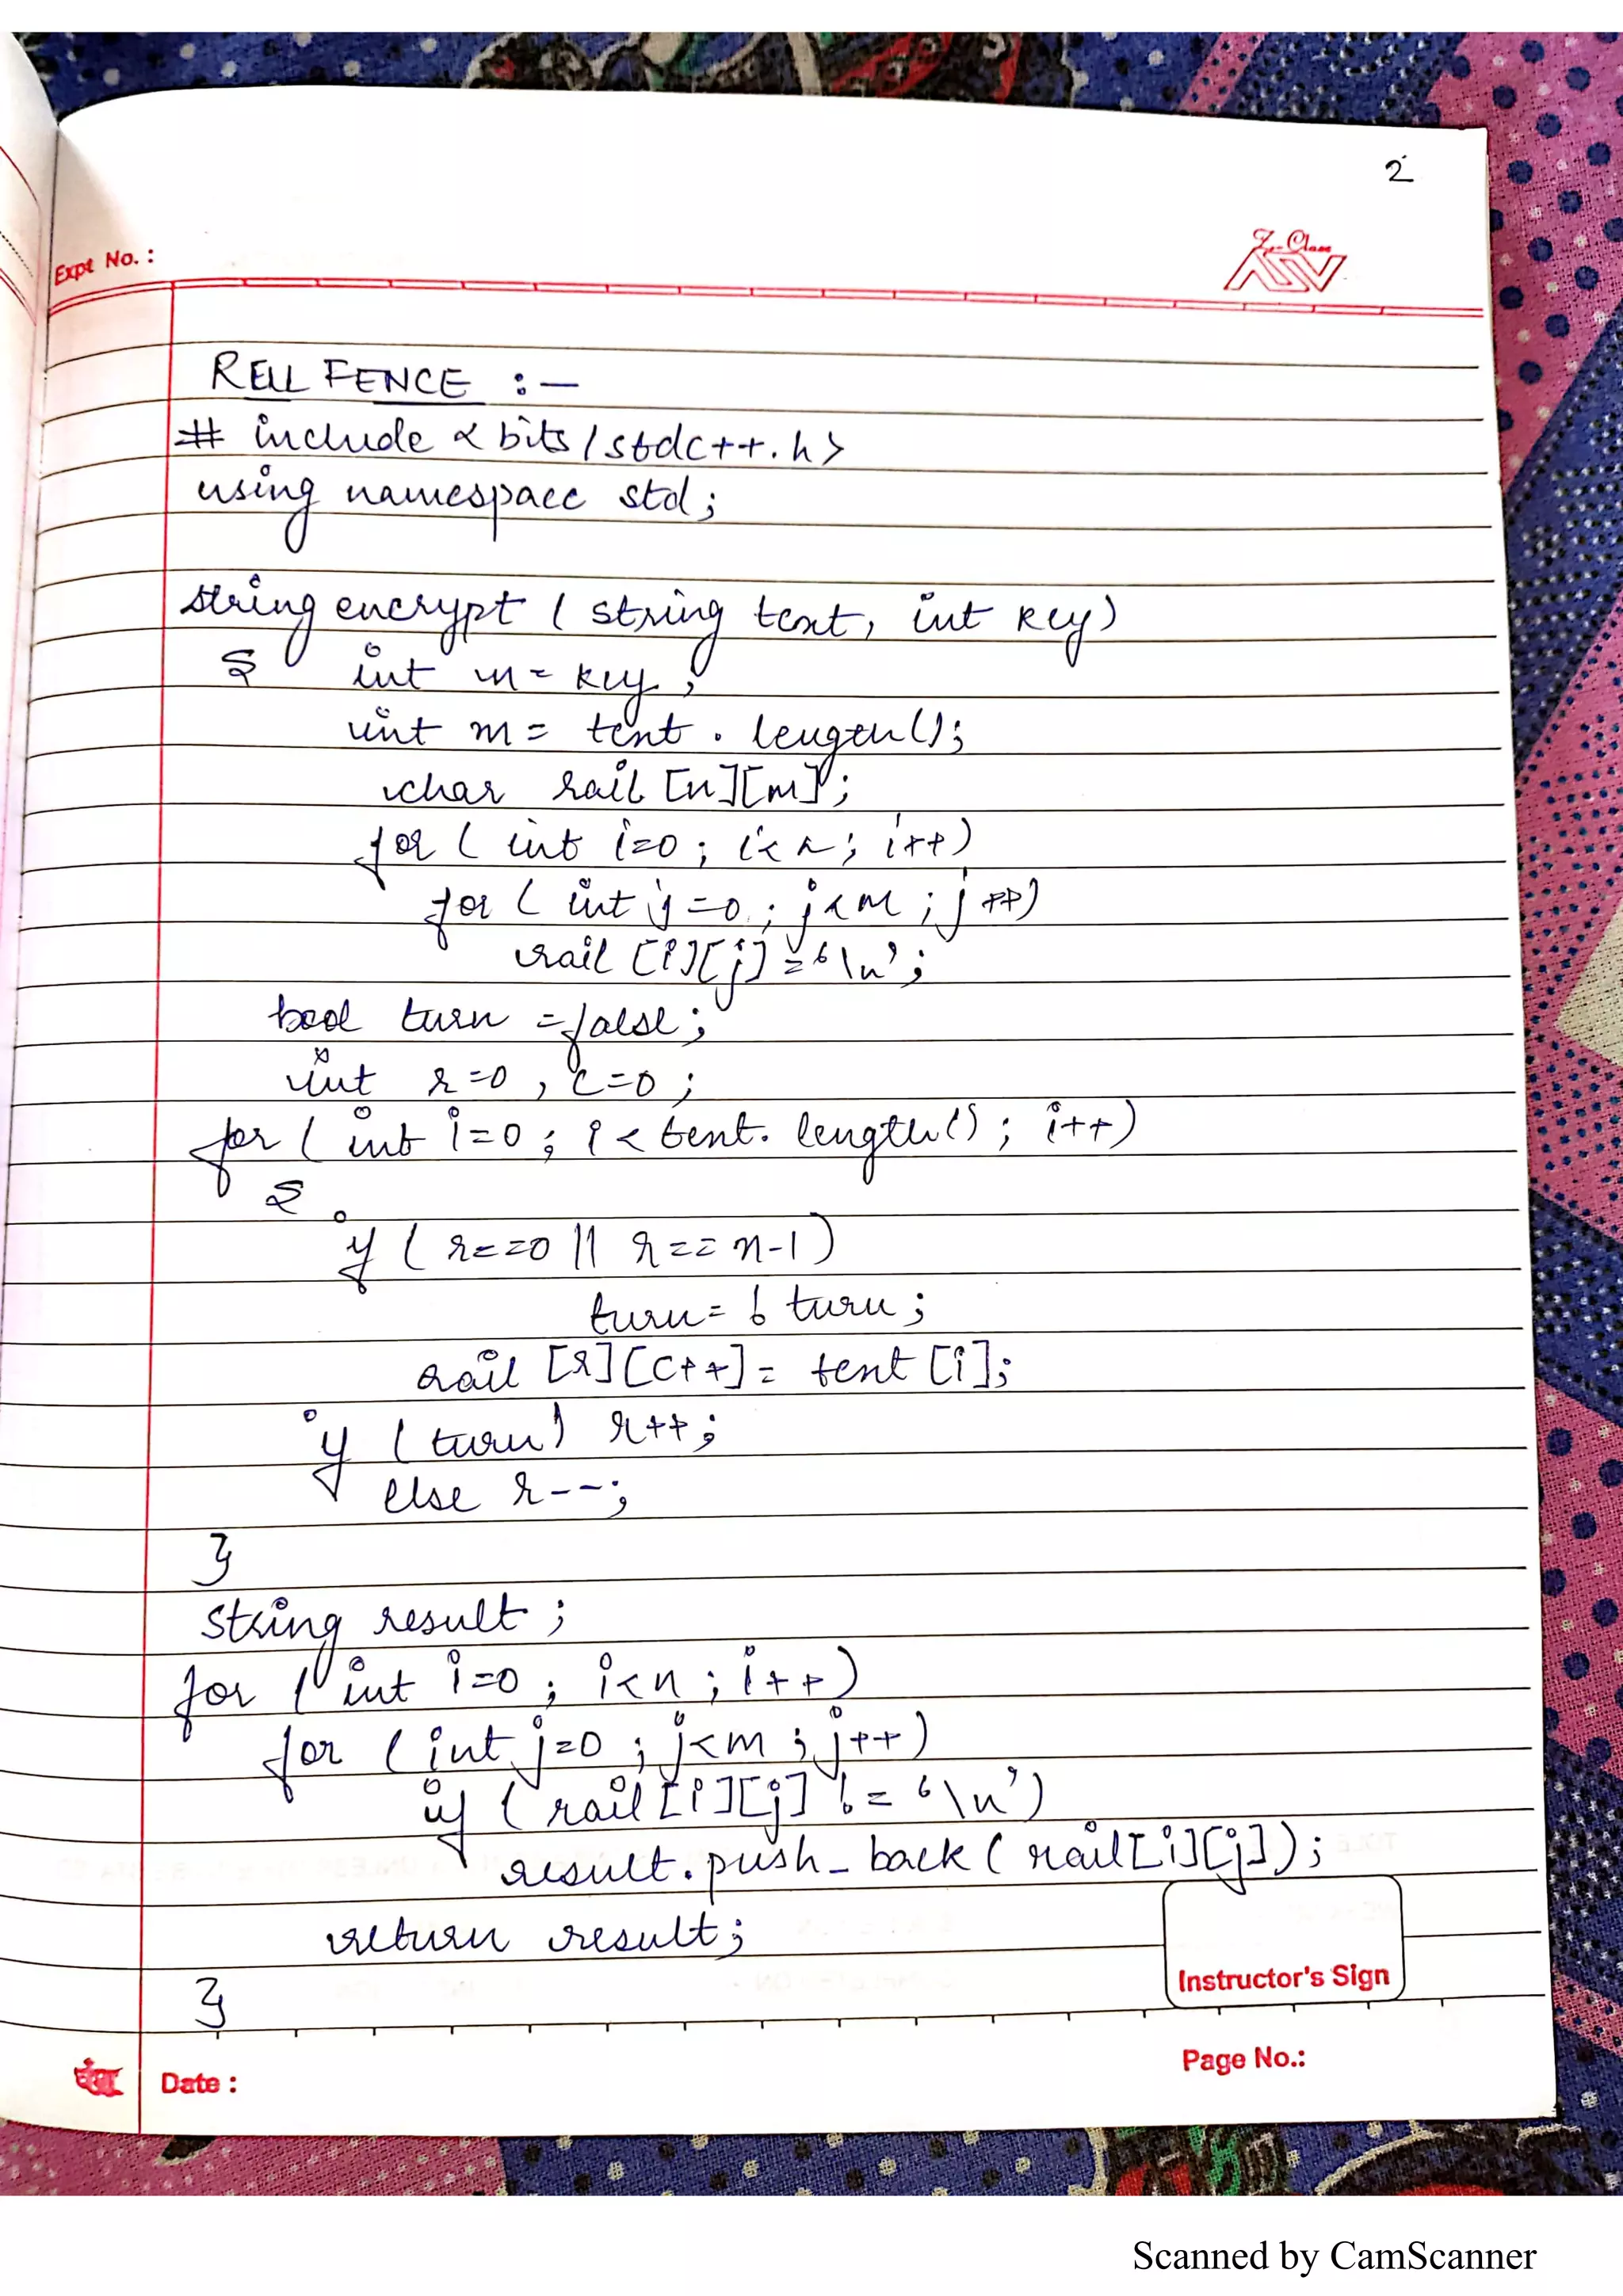 2
Expt No. :
RELL FENCE :-
# include <bits/stdc++.h>
using namespace std;
string encrypt ( string text, int key)
{ int n = key ;
int m = text . length();
char rail [n][m];
for ( int i=0 ; i<n ; i++)
for ( int j=0 ; j<m ; j++)
rail [i][j] = '\n';
bool turn = false ;
int r=0 , c=0 ;
for ( int i=0 ; i < text. length() ; i++)
{
if ( r==0 || r==n-1)
turn= ! turn ;
rail [r][c++]= text [i];
if (turn) r++;
else r--;
}
string result ;
for ( int i=0 ; i<n ; i++)
for ( int j=0 ; j<m ; j++)
if ( rail [i][j] != '\n')
result.push_back( rail[i][j]);
return result;
}
Instructor's Sign
Date :
Page No.:
Scanned by CamScanner